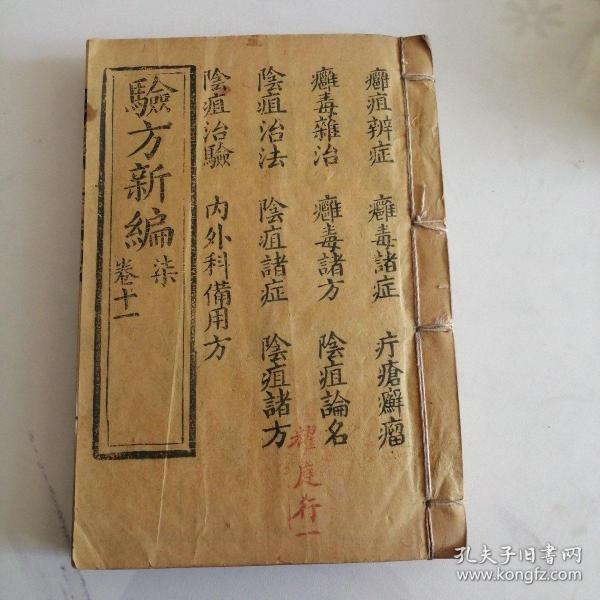 癰疽辨症 癰毒諸症 疔瘡癬瘤
癰毒雜治 癰毒諸方 陰疽論名
陰疽治法 陰疽諸症 陰疽諸方
陰疽治驗 內外科備用方
驗方新編 柒
卷十一
耀庭行一
孔夫子旧书网
www.kongfz.com